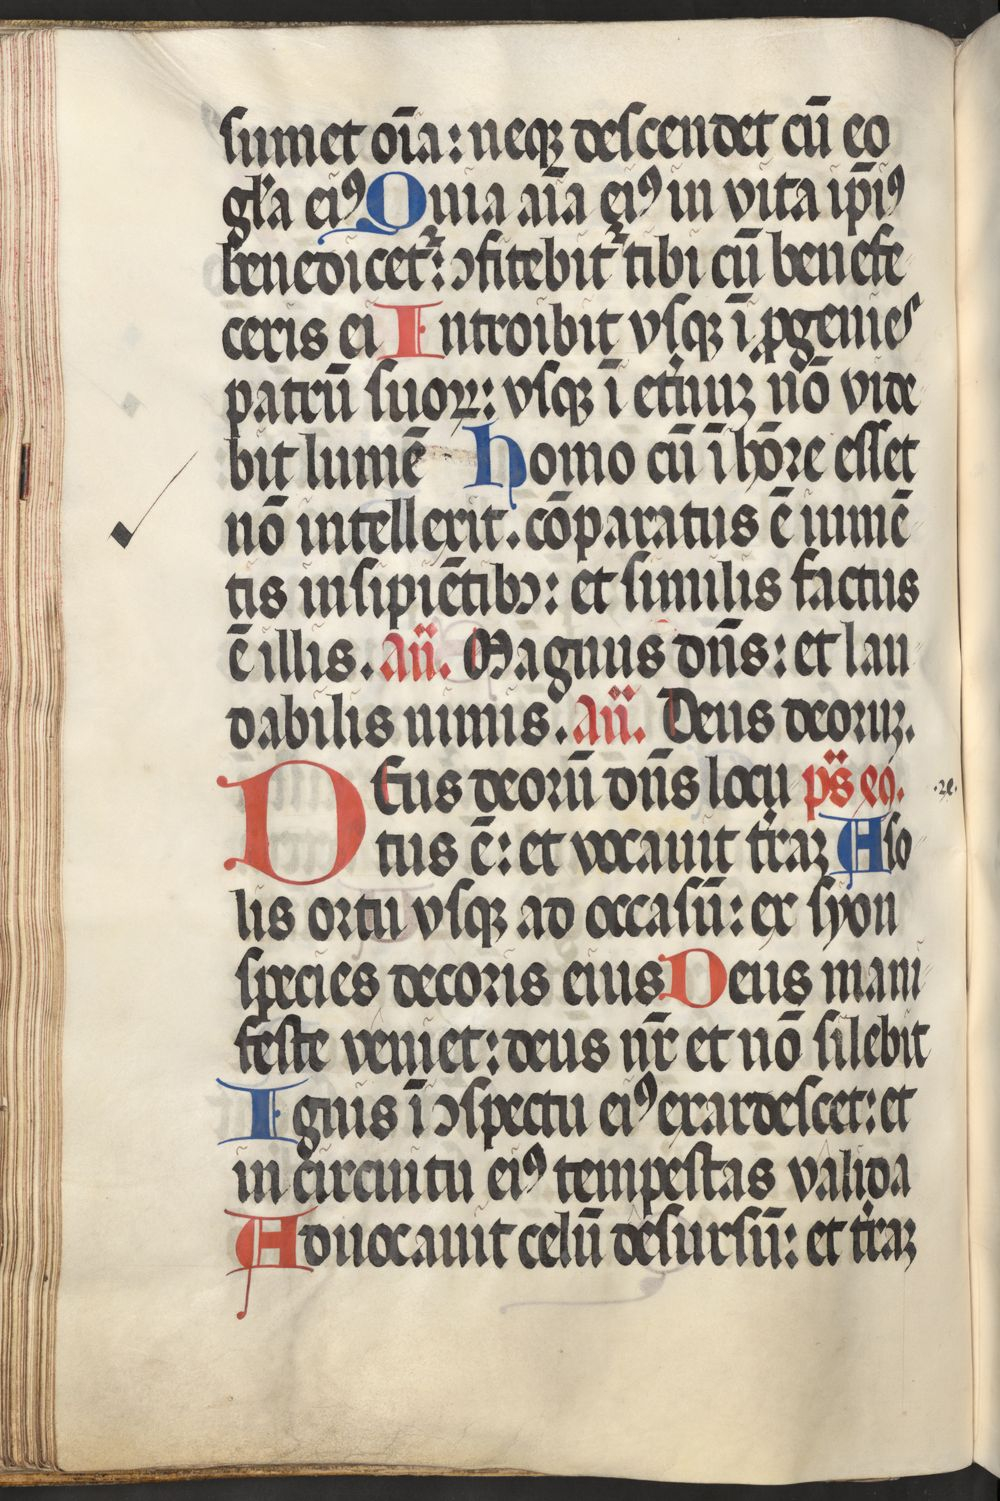 sumet oīa: neqꝫ descendet cū eo
gl̄a eiꝰ Quia aīa eiꝰ in vita ip̄iꝰ
benedicet᷑: ↄfitebit᷑ tibi cū benefe
ceris ei Introibit vsqꝫ ī ꝓgenies
patrū suoꝝ: vsqꝫ ī et̓nuꝫ nō vide
bit lumē Homo cū ī hōre esset
nō intellexit. cōparatus ē iumē
tis insipiētibꝰ: et similis factus
ē illis. Añ. Magnus dn̄s: et lau
dabilis nimis. Añ. Deus deoruꝫ.
DEus deorū dn̄s locu ps̄ 
tus ē: et vocauit t̓raꝫ A so
lis ortu vsqꝫ ad occasū: ex syon
species decoris eius Deus mani
feste veniet: deus nr̄ et nō silebit
Ignis ī ↄspectu eiꝰ exardescet: et
in circuitu eiꝰ tempestas valida
Aduocauit celū desursū: et t̓raꝫ